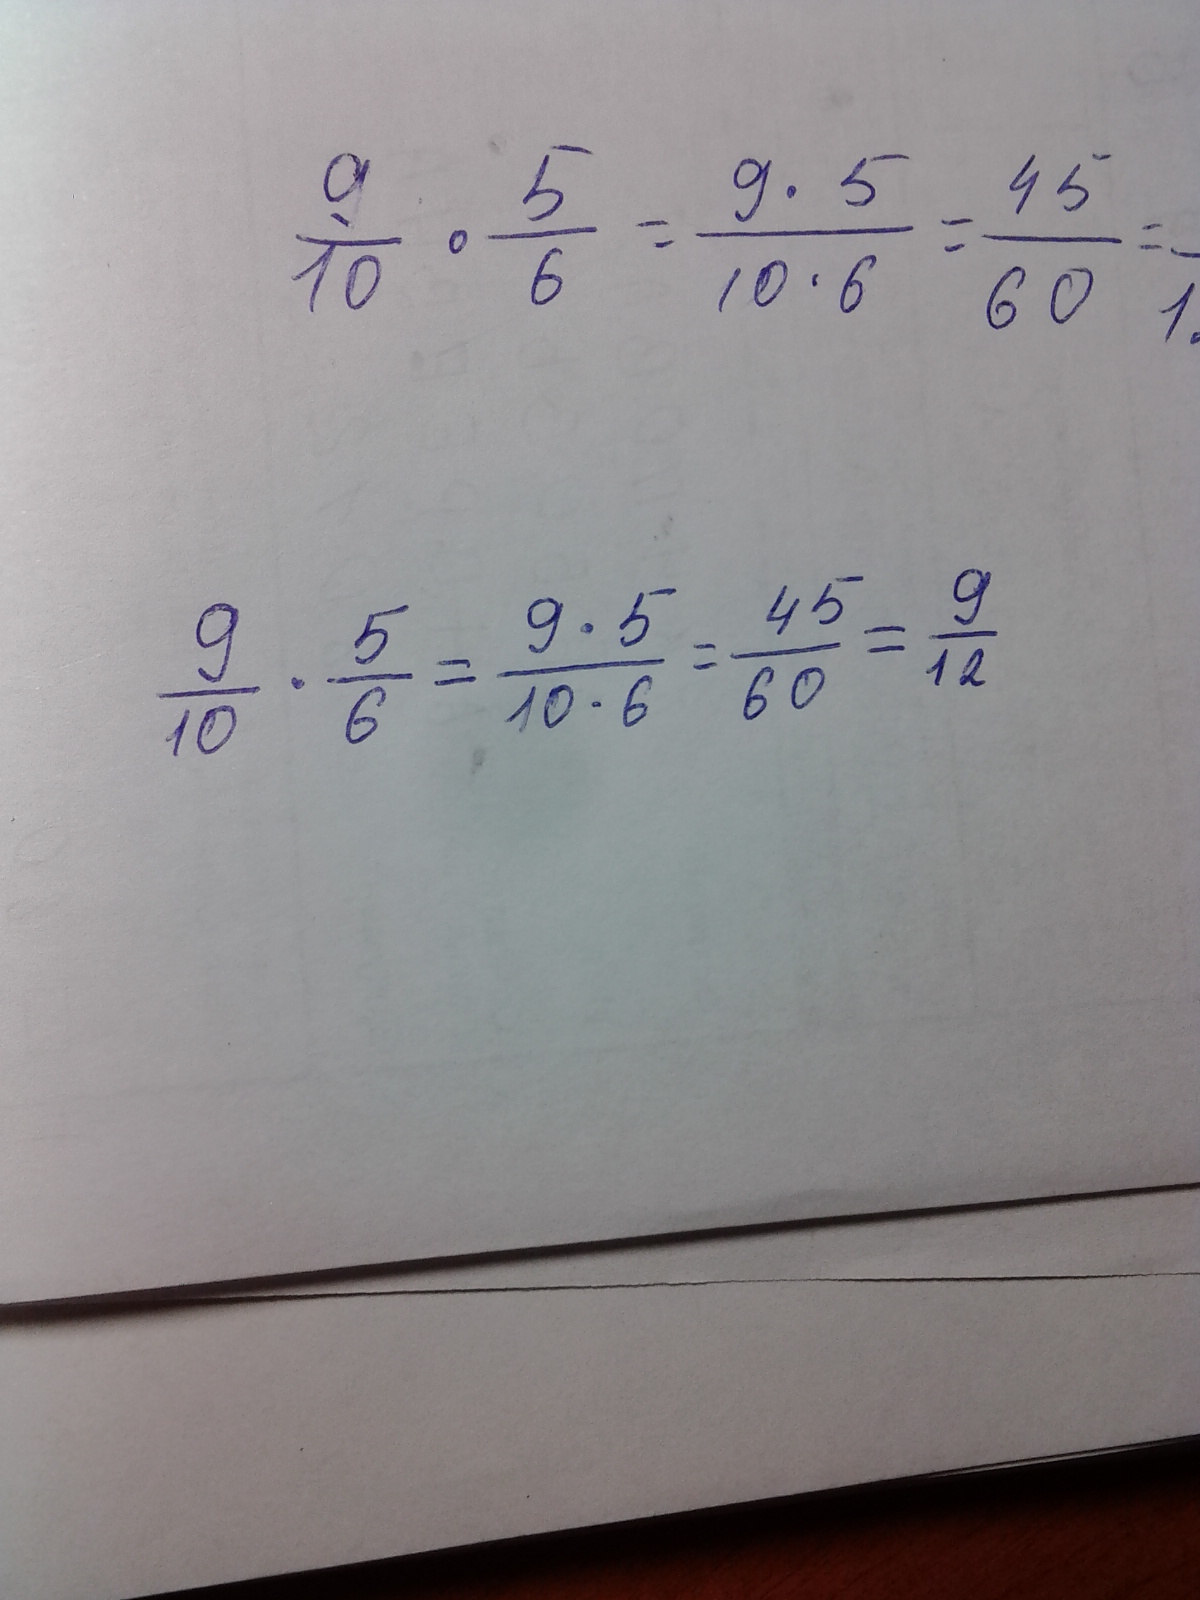 9/10 · 5/6 = 9·5/10·6 = 45/60 =
9/10 · 5/6 = 9·5/10·6 = 45/60 = 9/12